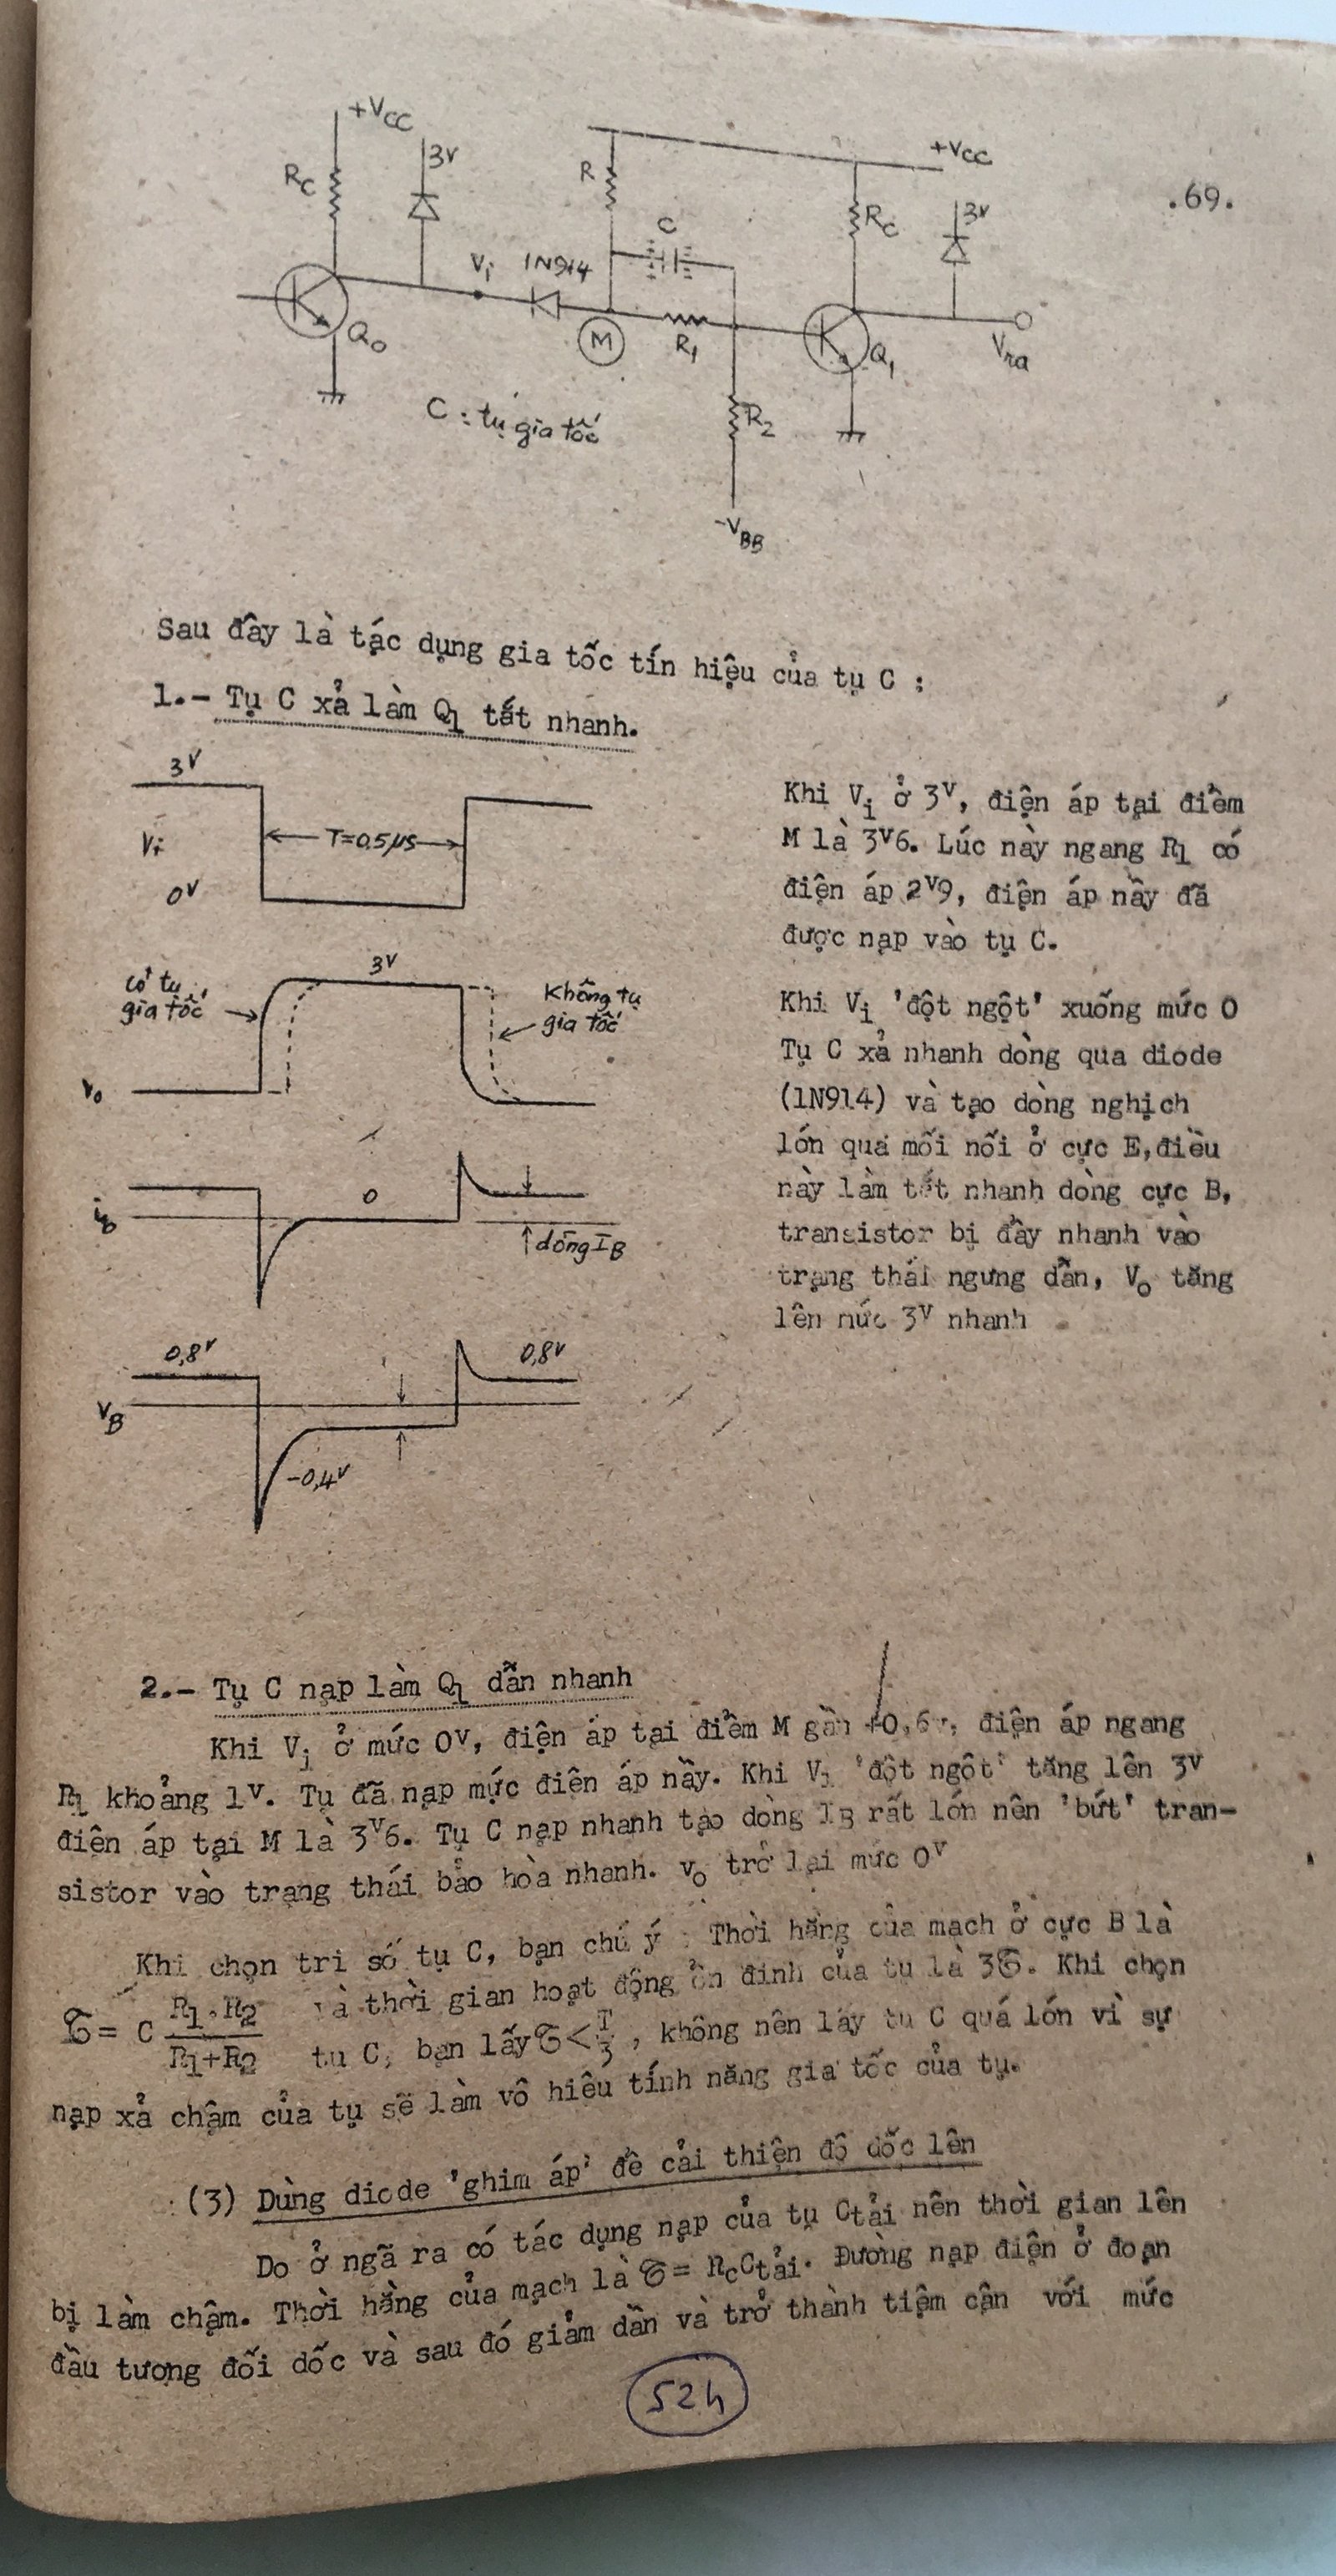 .69.
+VCC
3V
RC
R
C
+VCC
RC
3V
Vi
1N914
M
R1
Q0
Q1
Vra
R2
C : tụ gia tốc
-VBB
Sau đây là tác dụng gia tốc tín hiệu của tụ C :
1.- Tụ C xả làm Q1 tắt nhanh.
3V
Vi
T=0,5µs
0V
có tụ
gia tốc
3V
không tụ
gia tốc
vo
iB
0
dòng IB
0,8V
0,8V
VB
-0,4V
Khi Vi ở 3V, điện áp tại điểm
M là 3V6. Lúc này ngang R1 có
điện áp 2V9, điện áp nầy đã
được nạp vào tụ C.
Khi Vi 'đột ngột' xuống mức 0
Tụ C xả nhanh dòng qua diode
(1N914) và tạo dòng nghịch
lớn qua mối nối ở cực E,điều
này làm tắt nhanh dòng cực B,
transistor bị đẩy nhanh vào
trạng thái ngưng dẫn, Vo tăng
lên mức 3V nhanh
2.- Tụ C nạp làm Q1 dẫn nhanh
Khi Vi ở mức 0V, điện áp tại điểm M gần +0,6v, điện áp ngang
R1 khoảng 1V. Tụ đã nạp mức điện áp nầy. Khi Vi 'đột ngột' tăng lên 3V
điện áp tại M là 3V6. Tụ C nạp nhanh tạo dòng IB rất lớn nên 'bứt' tran-
sistor vào trạng thái bảo hòa nhanh. vo trở lại mức 0V
Khi chọn trị số tụ C, bạn chú ý : Thời hằng của mạch ở cực B là
𝒯= C R1.R2 / R1+R2 và thời gian hoạt động ổn định của tụ là 3𝒯. Khi chọn
tụ C, bạn lấy 𝒯 < T/3 , không nên lấy tụ C quá lớn vì sự
nạp xả chậm của tụ sẽ làm vô hiệu tính năng gia tốc của tụ.
(3) Dùng diode 'ghim áp' để cải thiện độ dốc lên
Do ở ngã ra có tác dụng nạp của tụ Ctải nên thời gian lên
bị làm chậm. Thời hằng của mạch là 𝒯= RcCtải. Đường nạp điện ở đoạn
đầu tương đối dốc và sau đó giảm dần và trở thành tiệm cận với mức
524